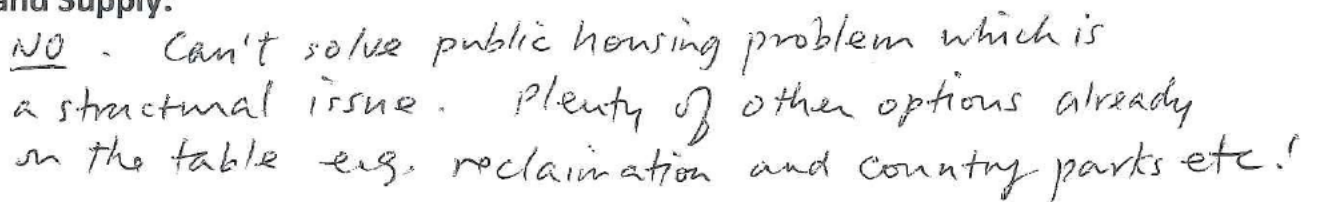 and supply.
NO. Can't solve public housing problem which is
a structural issue. Plenty of other options already
on the table e.g. reclaimation and country parks etc.!